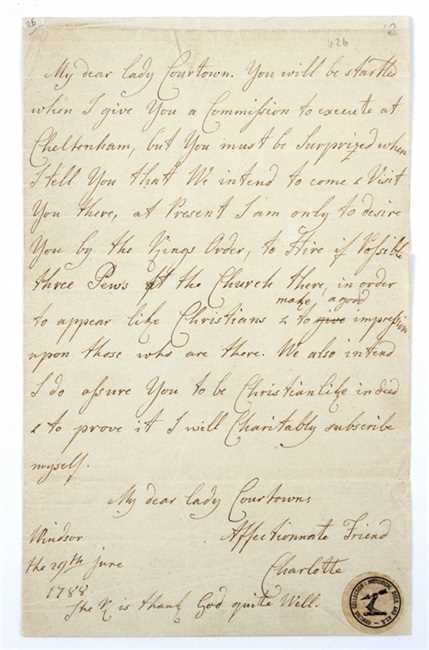 26
426
12
My dear lady Courtown. You will be startled
when I give You a Commission to execute at
Cheltenham, but You must be Surprized when
I tell You that We intend to come & Visit
You there, at Present I am only to desire
You by the Kings Order, to Hire if Possible
three Pews at the Church there, in order
make a good
to appear like Christians & to give impression
upon those who are there. We also intend
I do assure You to be Christianlike indeed
& to prove it I will Charitably subscribe
myself.
My dear lady Courtowns
Windsor Affectionnate Friend
the 29th june Charlotte
1788
The K is thank God quite Well.